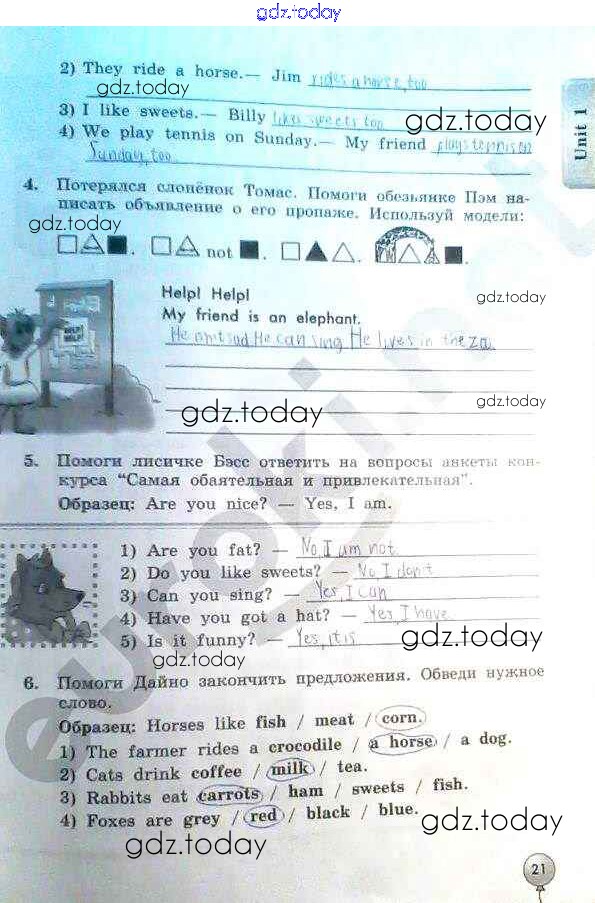 gdz.today
2) They ride a horse.— Jim rides a horse, too
gdz.today
3) I like sweets.— Billy likes sweets too
gdz.today
4) We play tennis on Sunday.— My friend plays tennis on
Sunday, too
Unit 1
4. Потерялся слонёнок Томас. Помоги обезьянке Пэм на-
писать объявление о его пропаже. Используй модели:
gdz.today
not
Help! Help!
gdz.today
My friend is an elephant.
HELP! HELP!
He isn't sad He can sing He lives in the
gdz.today
gdz.today
5. Помоги лисичке Бэсс ответить на вопросы анкеты кон-
курса "Самая обаятельная и привлекательная".
Образец: Are you nice? — Yes, I am.
1) Are you fat? — No, I am not
2) Do you like sweets? — No I don't
3) Can you sing? — Yes, I can
4) Have you got a hat? — Yes, I have
5) Is it funny? — Yes, it is
gdz.today
gdz.today
6. Помоги Дайно закончить предложения. Обведи нужное
слово.
Образец: Horses like fish / meat / corn.
1) The farmer rides a crocodile / a horse / a dog.
2) Cats drink coffee / milk / tea.
3) Rabbits eat carrots / ham / sweets / fish.
4) Foxes are grey / red / black / blue.
gdz.today
gdz.today
21